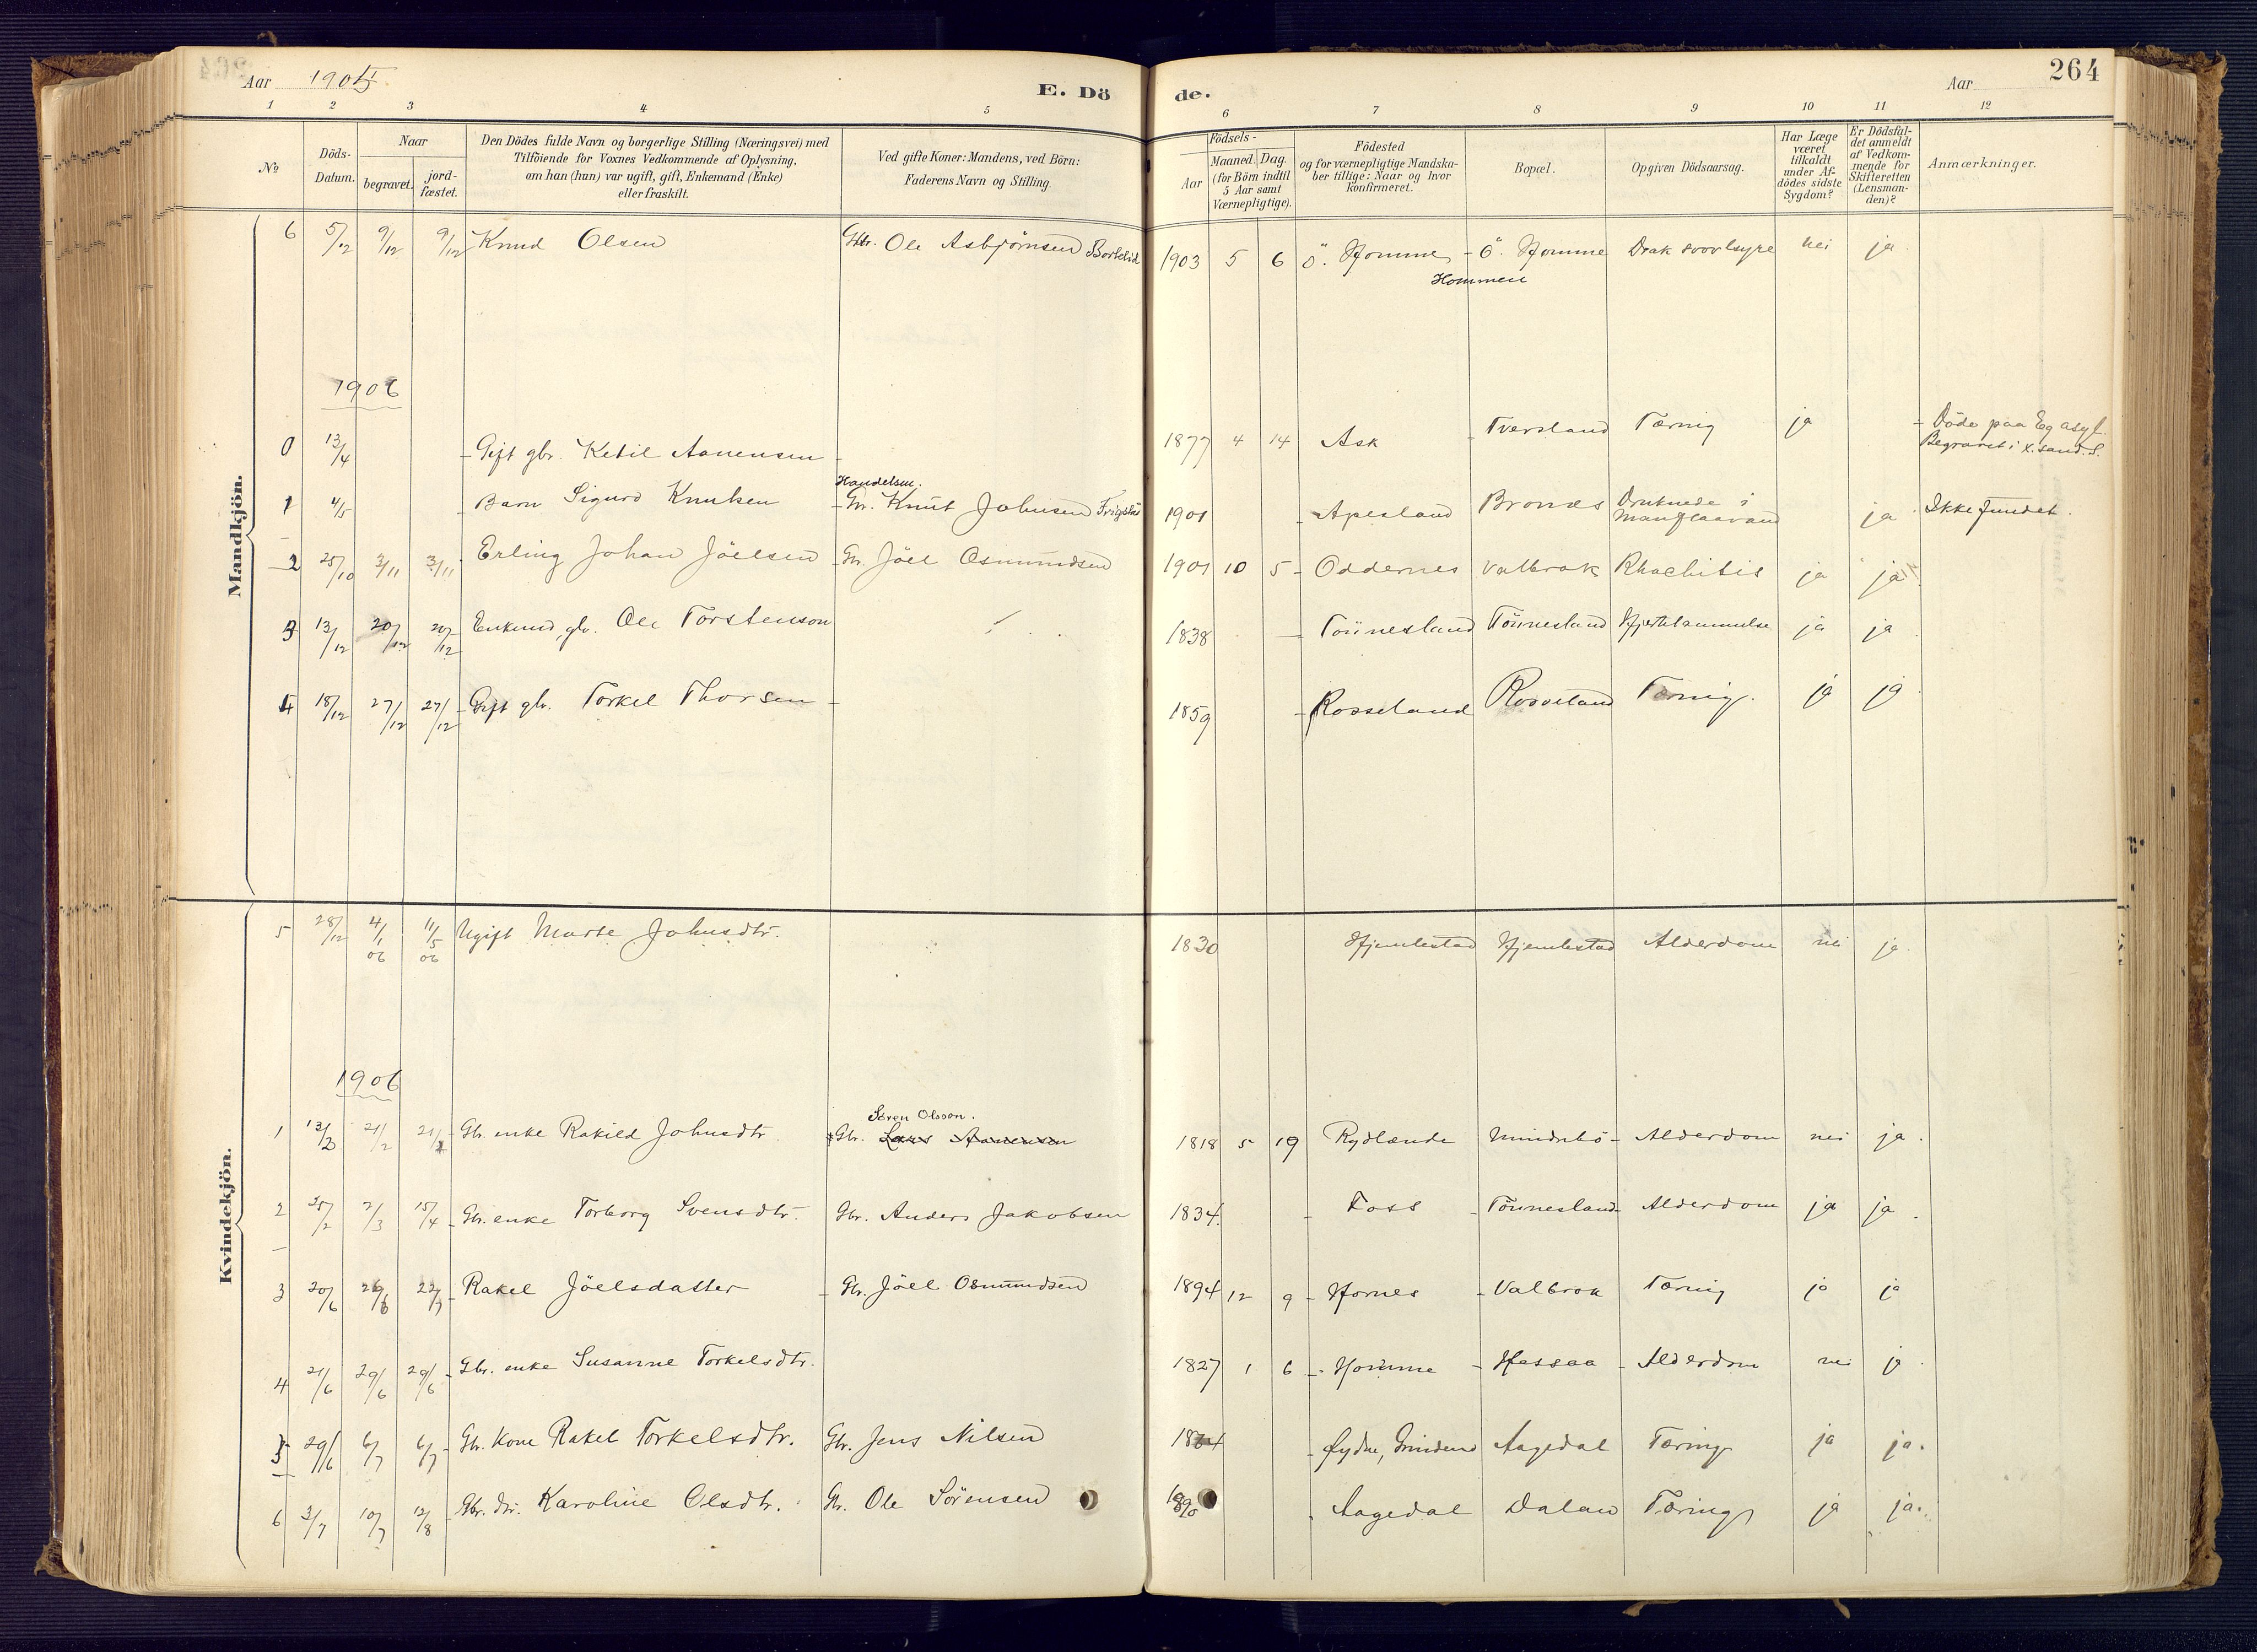 264
Aar 1905
E. Dö
de.
Aar
1 2 3 4 5 6 7 8 9 10 11 12
No
Döds-Datum.
Naar
begravet.
jord-fæstet.
Den Dödes fulde Navn og borgerlige Stilling (Næringsvei) med
Tilföiende for Voxnes Vedkommende af Oplysning,
om han (hun) var ugift, gift, Enkemand (Enke)
eller fraskilt.
Ved gifte Koner: Mandens, ved Börn:
Faderens Navn og Stilling.
Födsels-
Aar
Maaned. Dag.
(for Börn indtil
5 Aar samt
Værnepligtige).
Födested
og for værnepligtige Mandska-
ber tillige: Naar og hvor
konfirmeret.
Bopæl.
Opgiven Dödsaarsag.
Har Læge
været
tilkaldt
under Af-
dödes sidste
Sygdom?
Er Dödsfal-
det anmeldt
af Vedkom-
mende for
Skifteretten
(Lensman-
den)?
Anmærkninger.
Mandkjön.
6 5/12 9/12 9/12 Knud Olsen Gbr. Ole Asbjörnsen 1903 5 6 Ö. Homme Ö. Homme Drak svovlsyre nei ja
Hommen
1906
0 13/4 Gift gbr. Ketil Aanensen 1877 4 14 Ask Tversland Tæring ja Döde paa Eg asyl.
Begravet i X.sand.S.
Handelsm.
1 4/5 Barn Sigurd Knutsen Gbr. Knut Johnsen 1901 Apesland Bronæs Druknede i ja Ikke fundet.
2 25/10 3/11 3/11 Erling Johan Jöelsen Gbr. Jöel Osmundsen 1901 10 5 Oddernes Valbrak Rhachitis ja ja
3 13/12 20/12 20/12 Enkemd, gbr. Ole Torstenson 1838 Tönnesland Tönnesland Hjertelammelse ja ja
4 18/12 27/12 27/12 Gift gbr. Torkel Thorsen 1859 Rosseland Rosseland Tæring ja ja
Kvindekjön.
5 28/12 4/1 06 11/5 06 Ugift Marte Johnsdtr. 1830 Hjemlestad Hjemlestad Alderdom nei ja
1906
Sören Olsson.
1 13/2 21/2 Gbr. enke Rakild Johnsdtr. Gbr. Lars Aanenson 1818 5 19 Rydlende Alderdom nei ja
2 25/2 2/3 15/4 Gbr. enke Torborg Svensdtr. Gbr. Anders Jakobsen 1834 Foss Tönnesland Alderdom ja ja
3 20/6 26/6 22/7 Rakel Jöelsdatter Gbr. Jöel Osmundsen 1894 12 9 Hornes Valbrak Tæring ja ja
4 21/6 29/6 29/6 Gbr. enke Susanne Torkelsdtr. 1827 1 6 Homme Hessaa Alderdom nei ja
5 29/6 6/7 6/7 Gbr. Kone Rakel Torkelsdtr. Gbr. Jens Nilsen Aagedal Tæring ja ja.
6 3/7 10/7 12/8 Gbr. dtr. Karoline Olsdtr. Gbr. Ole Sörensen 1890 Aagedal Dalan Tæring ja ja.